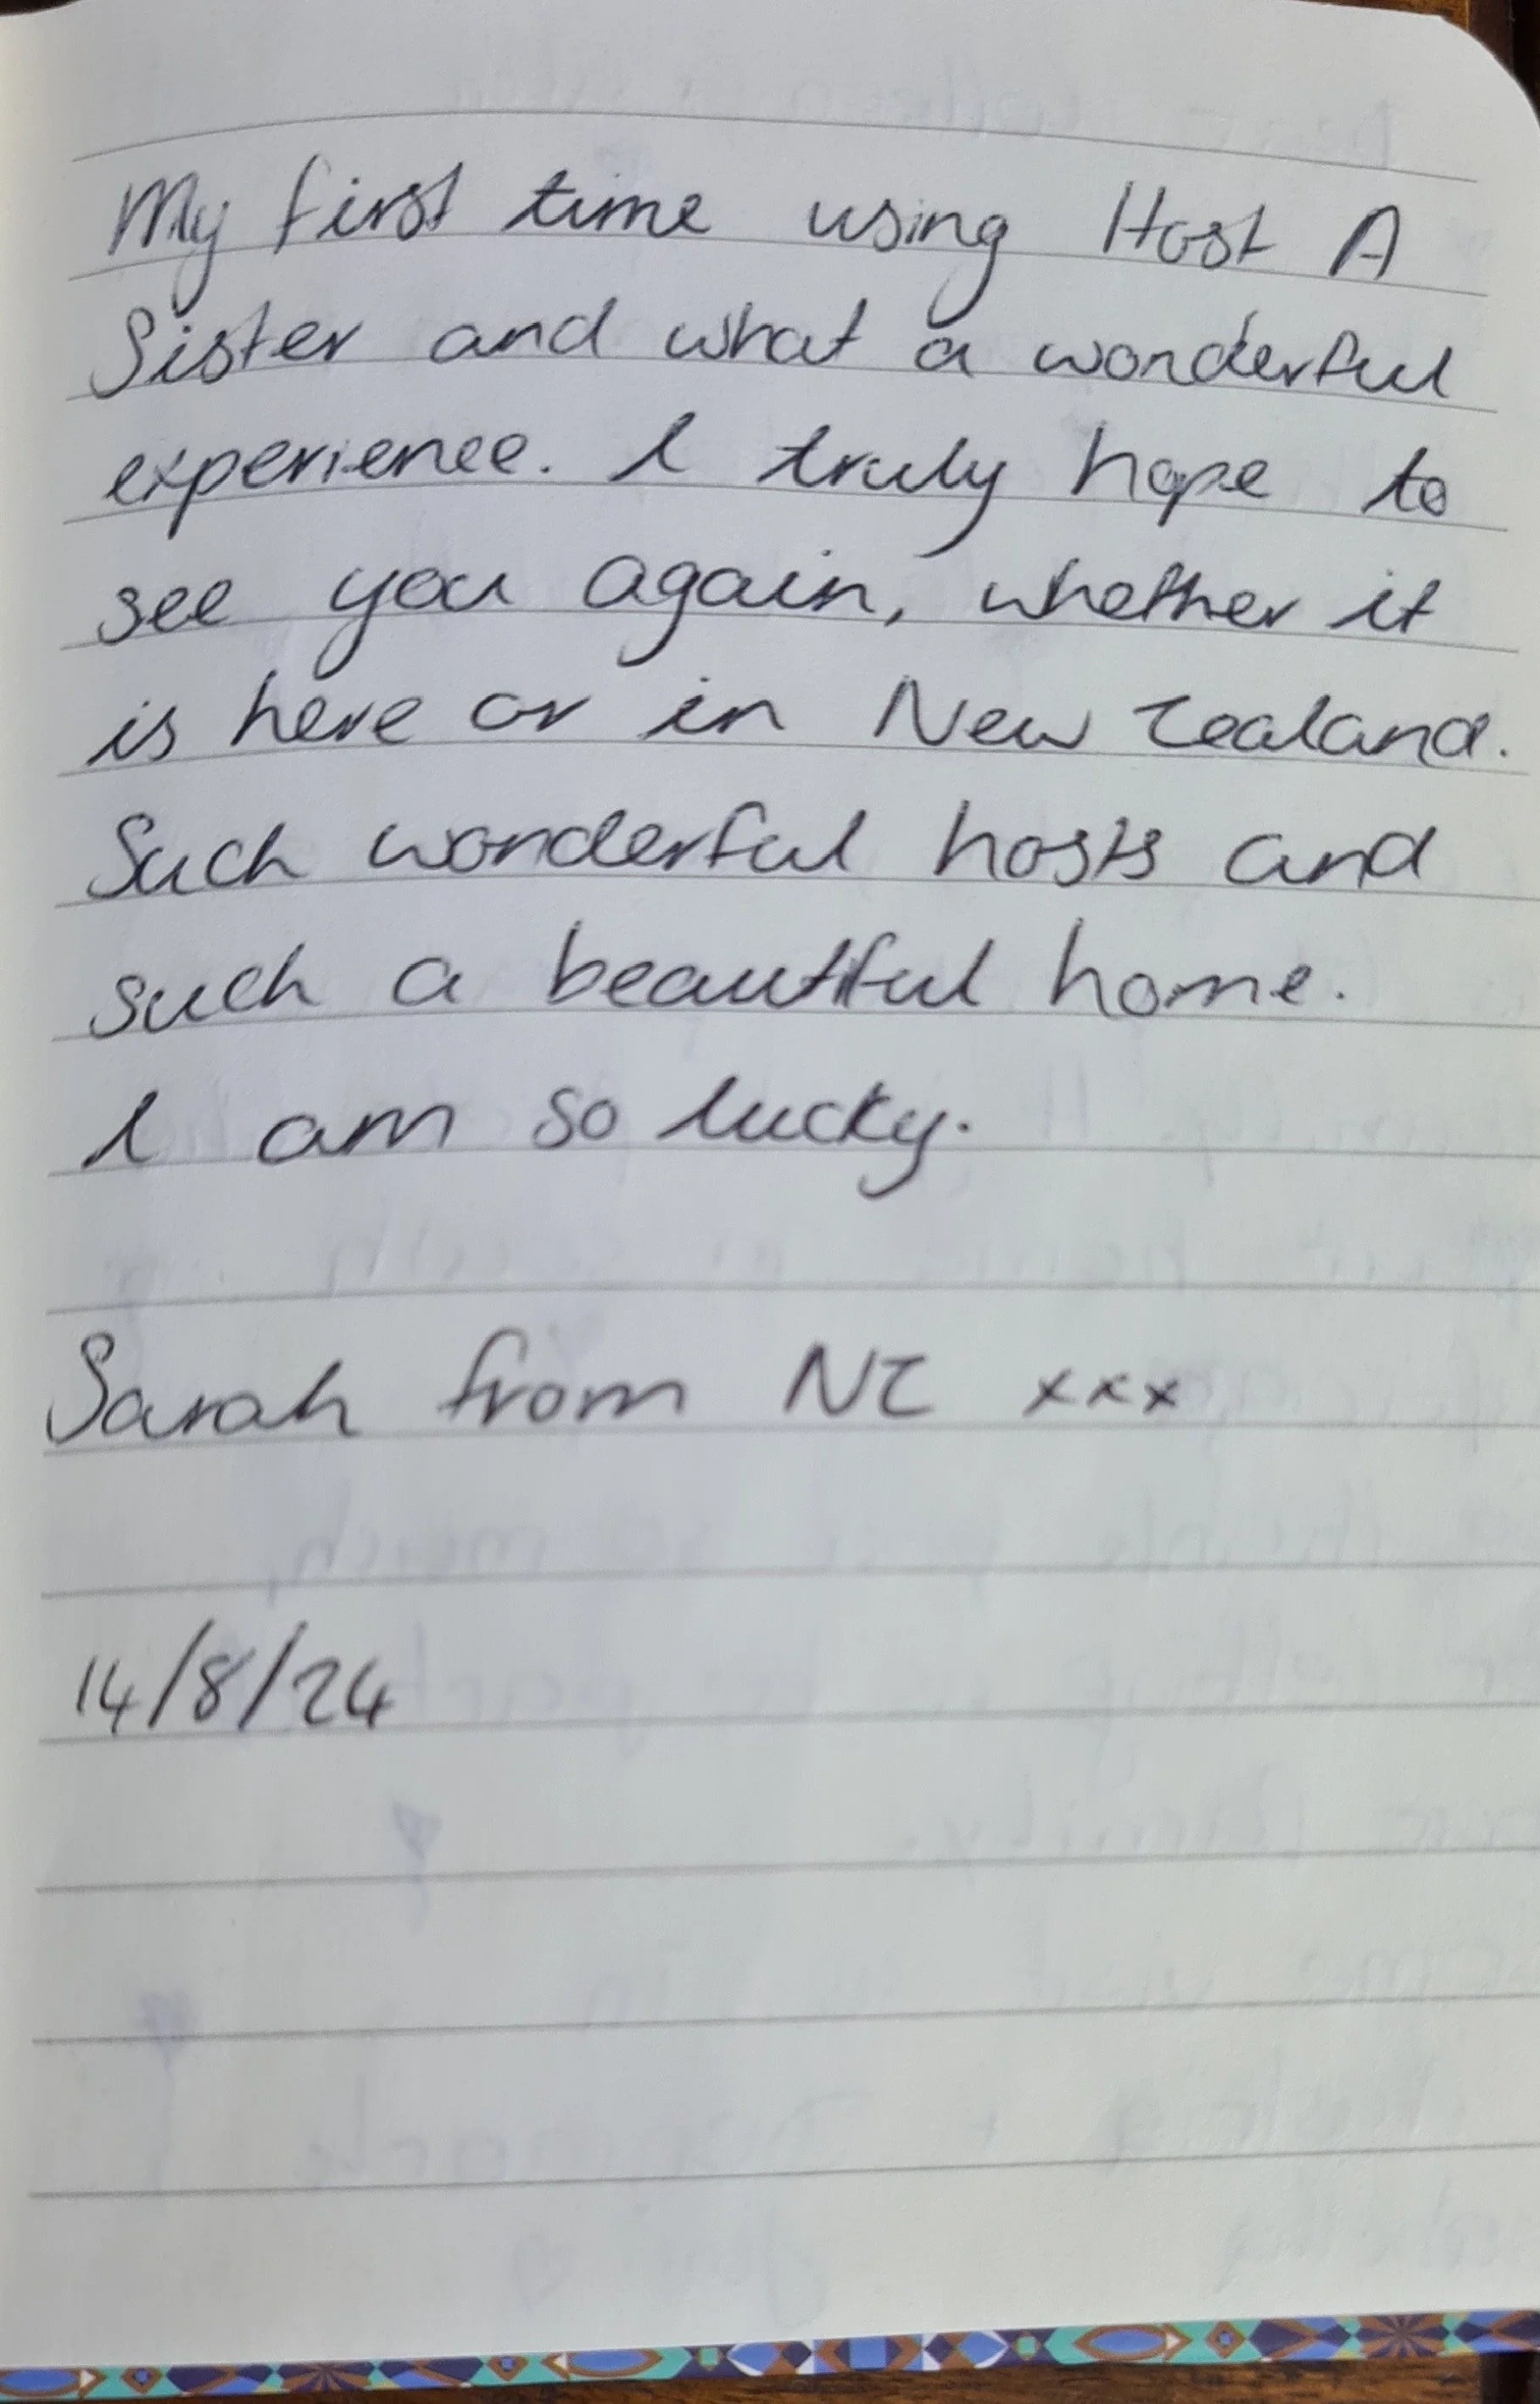 My first time using Host A
Sister and what a wonderful
experience. I truly hope to
see you again, whether it
is here or in New Zealand.
Such wonderful hosts and
such a beautiful home.
I am so lucky.
Sarah from NZ xxx
14/8/24